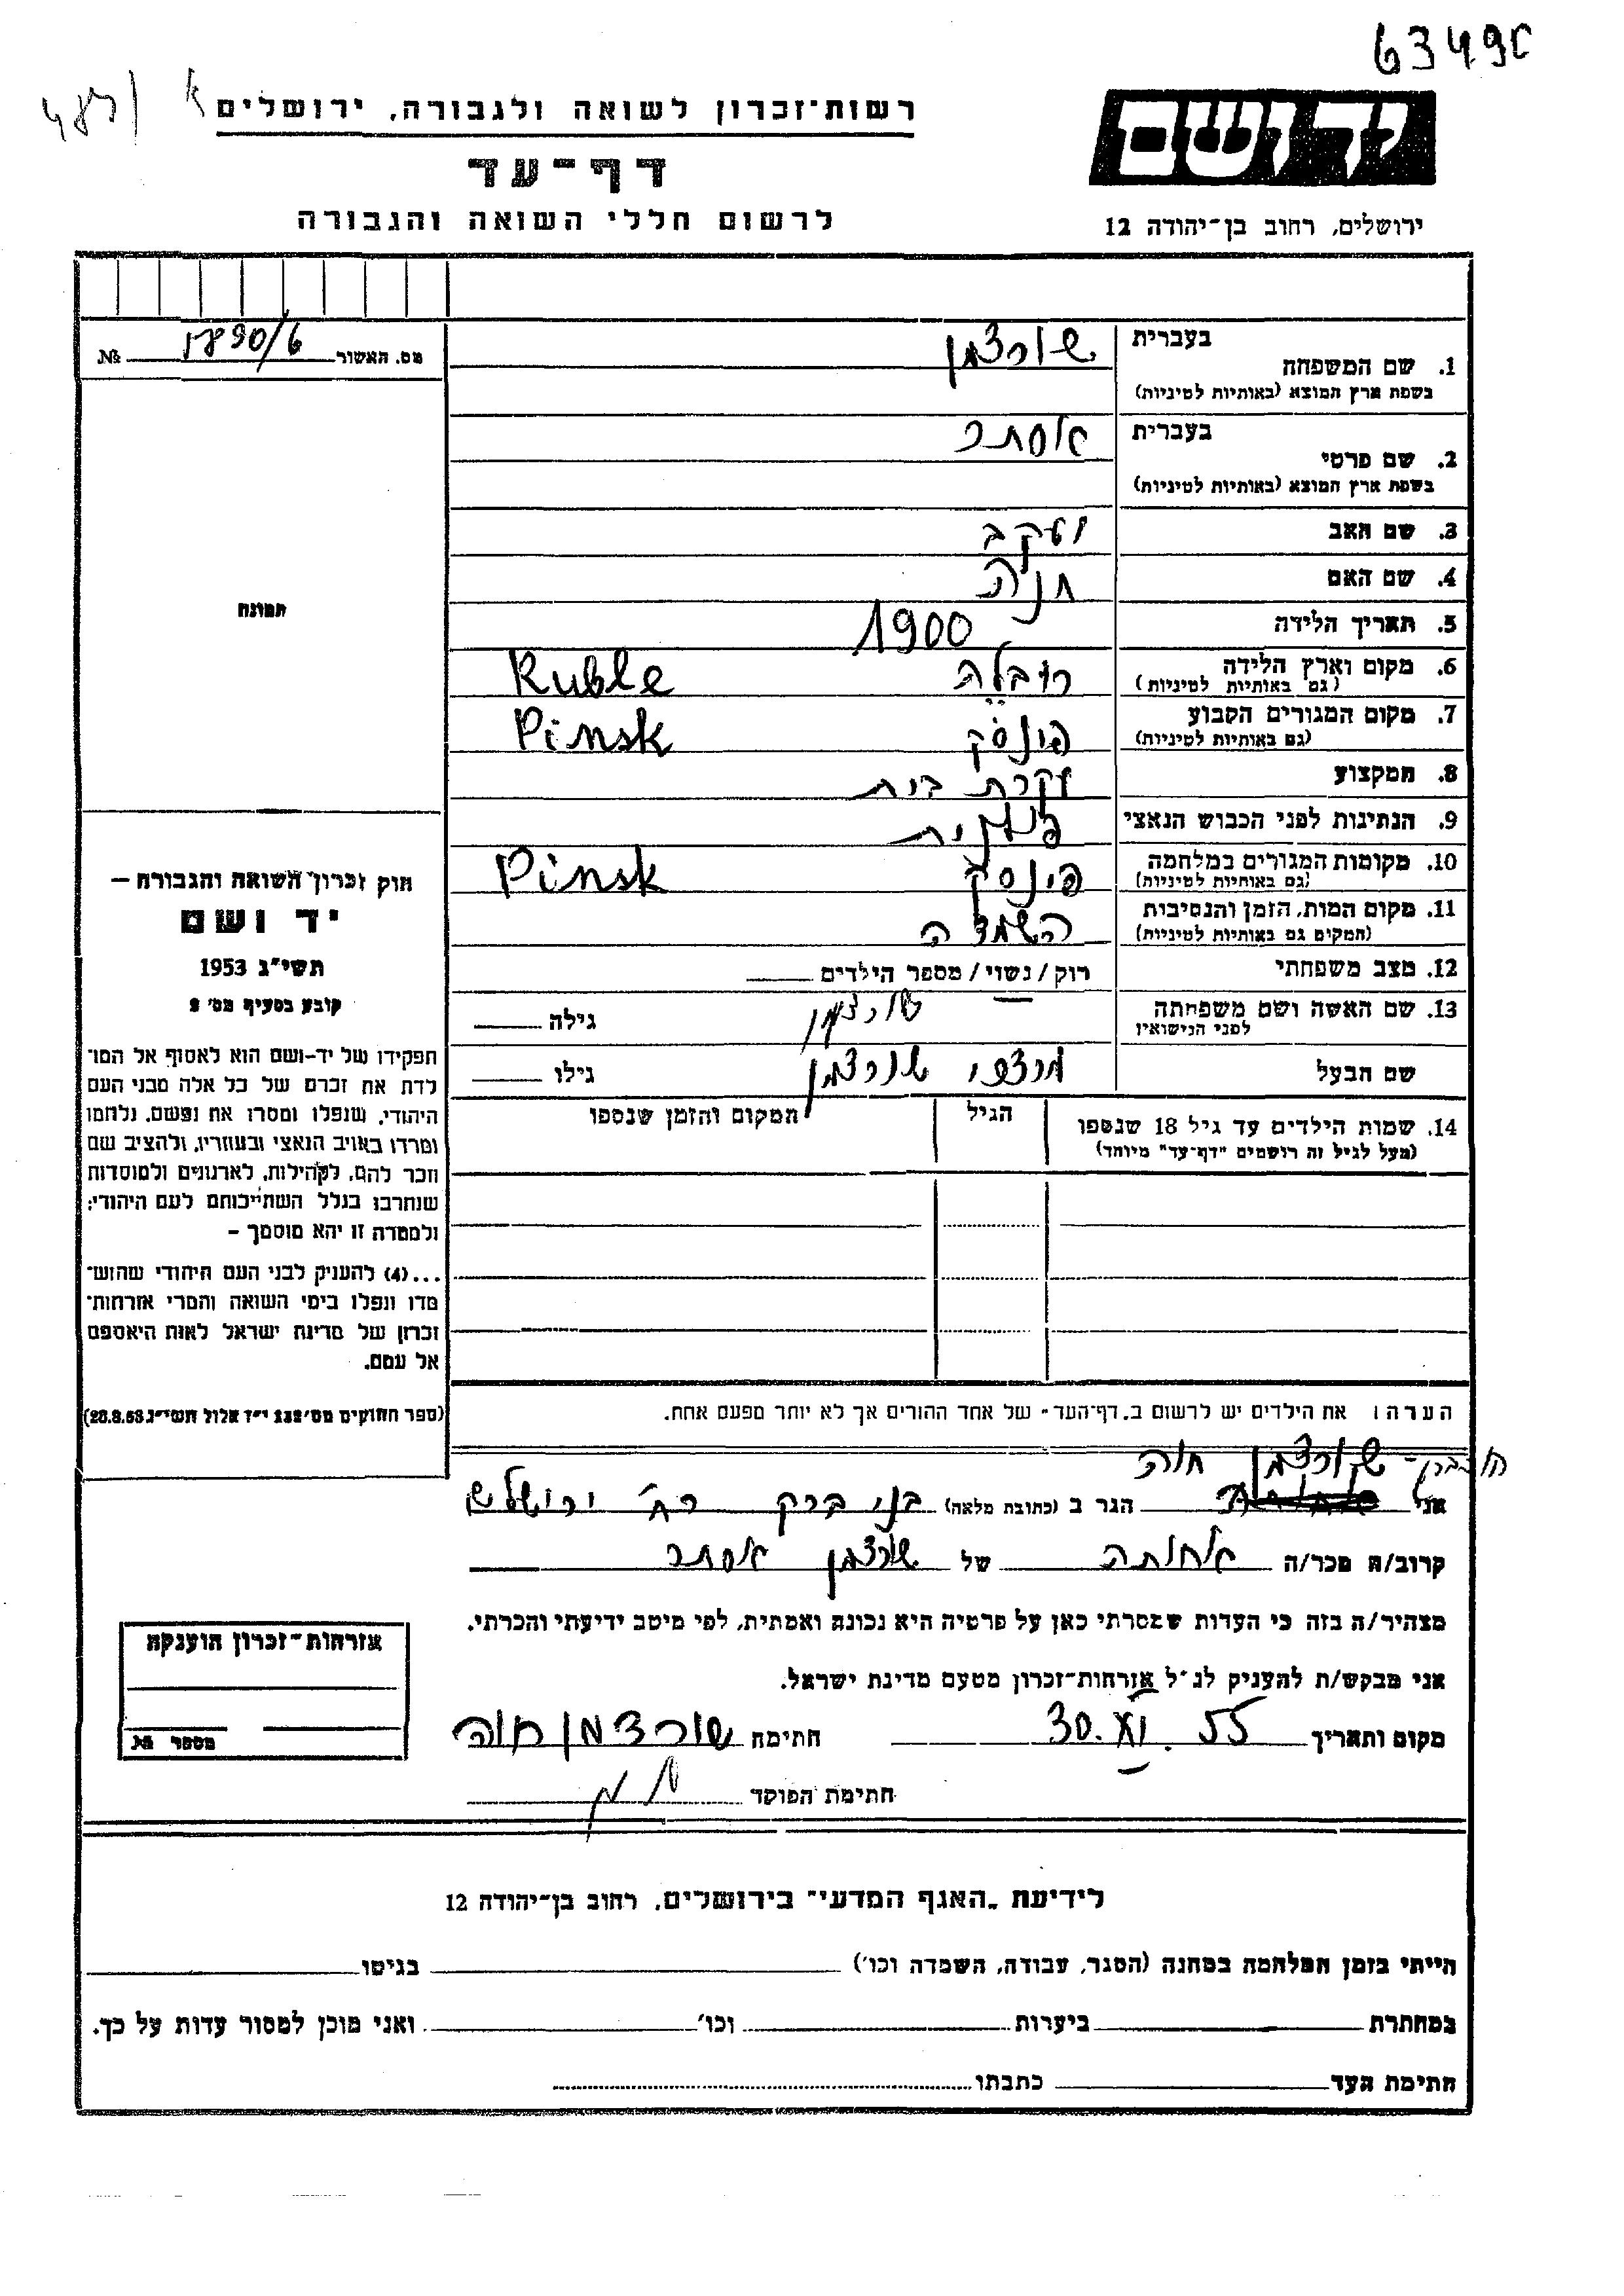 63490
יד ושם
ירושלים, רחוב בן־יהודה 12
רשות־זכרון לשואה ולגבורה, ירושלים
דף־עד
לרשום חללי השואה והגבורה
מס. האשור № 1890/6
תמונה
חוק זכרון השואה והגבורה —
יד ושם
תשי״ג 1953
קובע בסעיף מס׳ 2
תפקידו של יד-ושם הוא לאסוף אל המו־
לדת את זכרם של כל אלה מבני העם
היהודי, שנפלו ומסרו את נפשם, נלחמו
ומרדו באויב הנאצי ובעוזריו, ולהציב שם
וזכר להם, לקהילות, לארגונים ולמוסדות
שנחרבו בגלל השתייכותם לעם היהודי;
ולמטרה זו יהא מוסמך –
...(4) להעניק לבני העם היהודי שהוש־
מדו ונפלו בימי השואה והמרי אזרחות־
זכרון של מדינת ישראל לאות היאספם
אל עמם.
(ספר החוקים מס׳ 132 י״ז אלול תשי״ג 28.8.53)
בעברית שורצמן
1. שם המשפחה
בשפת ארץ המוצא (באותיות לטיניות)
בעברית אסתר
2. שם פרטי
בשפת ארץ המוצא (באותיות לטיניות)
3. שם האב יעקב
4. שם האם חנה
5. תאריך הלידה 1900
6. מקום וארץ הלידה רובלה Ruble
(גם באותיות לטיניות)
7. מקום המגורים הקבוע פינסק Pinsk
(גם באותיות לטיניות)
8. המקצוע עקרת בית
9. הנתינות לפני הכבוש הנאצי פולנית
10. מקומות המגורים במלחמה פינסק Pinsk
(גם באותיות לטיניות)
11. מקום המות, הזמן והנסיבות השמדה
(המקום גם באותיות לטיניות)
12. מצב משפחתי רוק/נשוי/מספר הילדים
13. שם האשה ושם משפחתה שורצמן גילה
לפני הנישואין
שם הבעל מרדכי שורצמן גילו
14. שמות הילדים עד גיל 18 שנספו הגיל המקום והזמן שנספו
(מעל לגיל זה רושמים "דף־עד" מיוחד)
הערה: את הילדים יש לרשום ב„דף־העד״ של אחד ההורים אך לא יותר מפעם אחת.
שורצמן חוה
אני הגר ב (כתובת מלאה) בני ברק רח׳ ירושלים
קרוב/ה מכר/ה אחותה של שורצמן אסתר
מצהיר/ה בזה כי העדות שמסרתי כאן על פרטיה היא נכונה ואמתית, לפי מיטב ידיעתי והכרתי.
אני מבקש/ת להעניק לנ״ל אזרחות־זכרון מטעם מדינת ישראל.
מקום ותאריך 30.XI.55 חתימה שורצמן חוה
חתימת הפוקד
אזרחות־זכרון הוענקה
מספר №
לידיעת „האגף המדעי״ בירושלים, רחוב בן־יהודה 12
הייתי בזמן המלחמה במחנה (הסגר, עבודה, השמדה וכו׳) בגיטו
במחתרת ביערות וכו׳ ואני מוכן למסור עדות על כך.
חתימת העד כתבתו